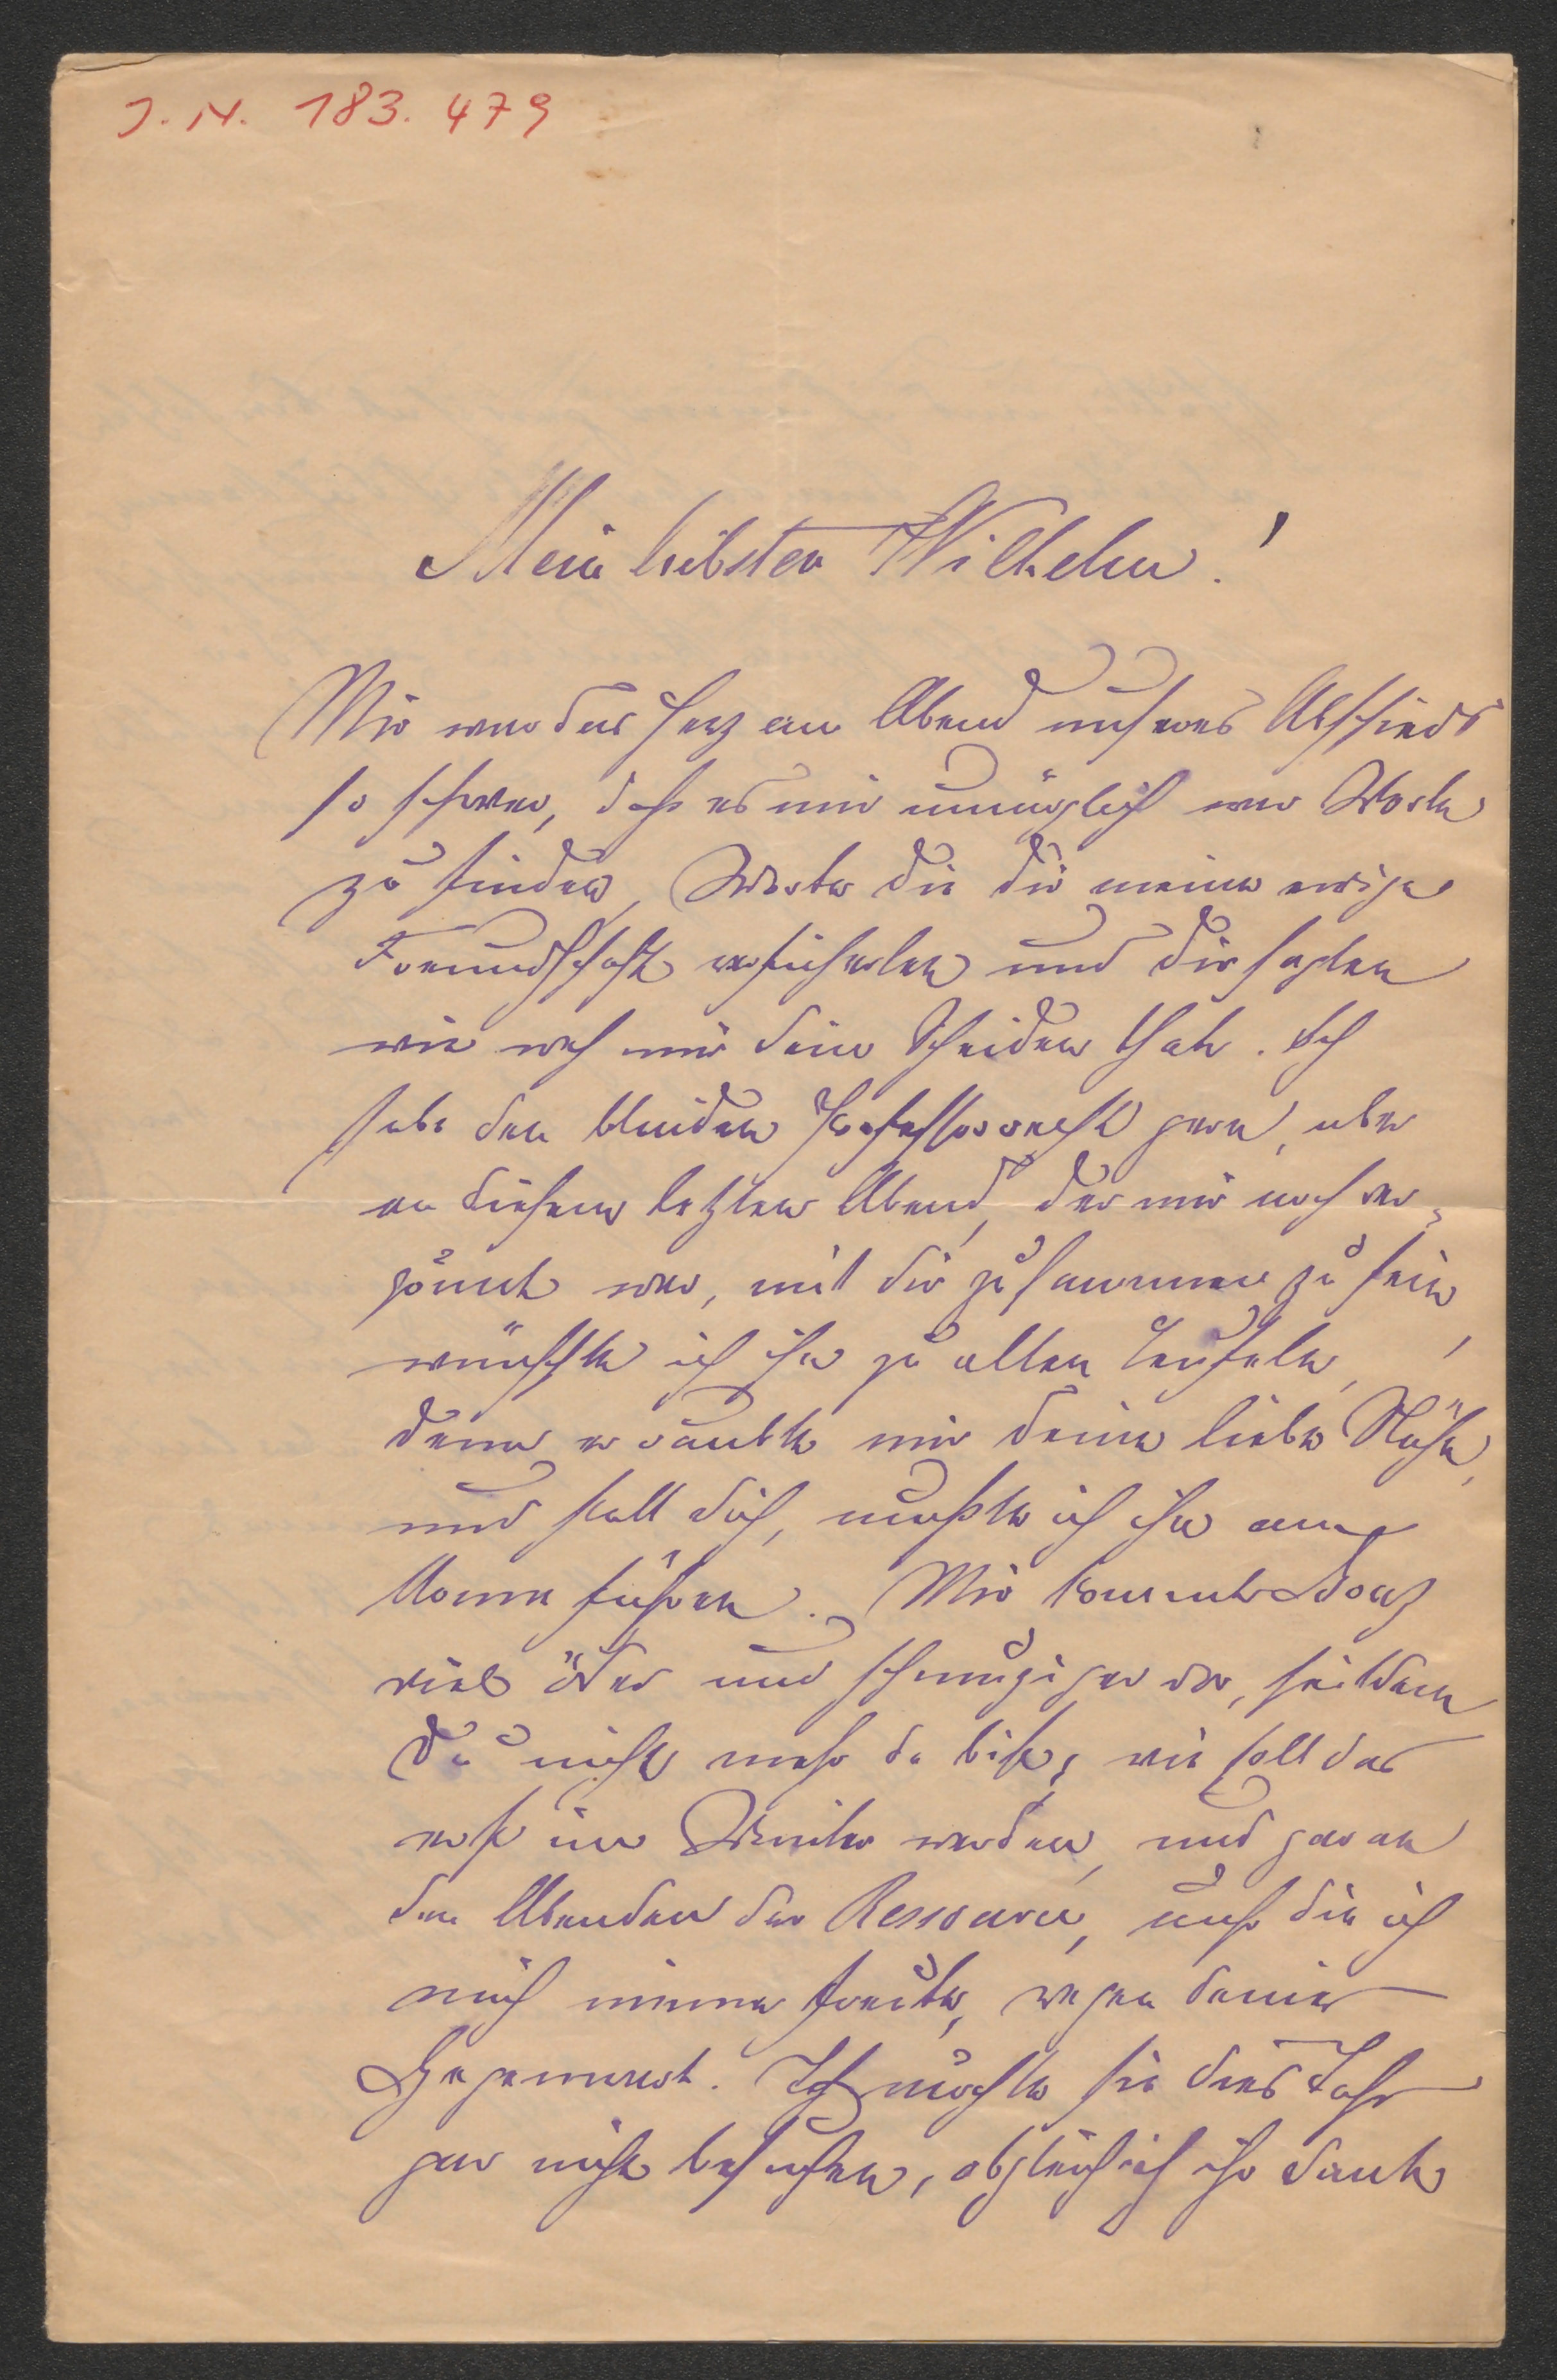 J. N. 183.479
Mein liebster Wilhelm!
Mir war das Herz am Abend unseres Abschieds
so schwer, daß es mir unmöglich war Worte
zu finden, Worte die dir meine ewige
Freundschaft versicherten und dir sagten
wie weh mir dein Scheiden thate. Ich
habe den blinden Professor recht gern, aber
an diesem letzten Abend, der mir noch ver-
gönnt war, mit dir zusammen zu sein,
wünschte ich ihn zu allen Teufeln,
denn er raubte mir deine liebe Nähe,
und statt dich, mußte ich ihn am
Arme führen. Mir kommt
viel öder und schmuziger vor, seitdem
Du nicht mehr da bist, wie soll das
erst im Winter werden, und gar an
den Abenden der Ressource, auf die ich
mich immer freute, wegen deiner
Gegenwart. Ich möchte sie dies Jahr
gar nicht besuchen, obgleich ich ihr danke